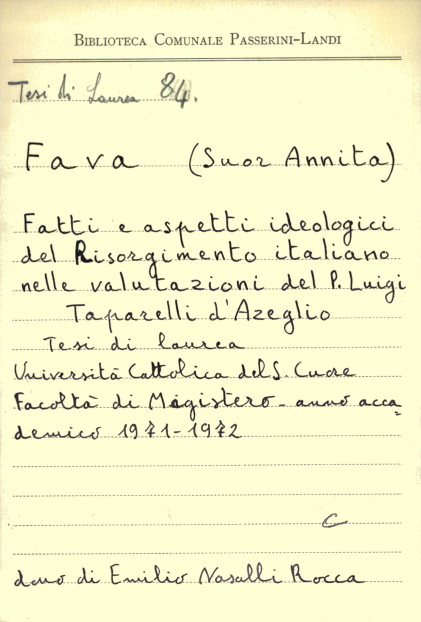 BIBLIOTECA COMUNALE PASSERINI-LANDI
Tesi di Laurea 84.
Fava (Suor Annita)
Fatti e aspetti ideologici
del Risorgimento italiano
nelle valutazioni del P. Luigi
Taparelli d'Azeglio
Tesi di laurea
Università Cattolica del S. Cuore
Facoltà di Magistero - anno acca=
demico 1971-1972
C
dono di Emilio Nasalli Rocca